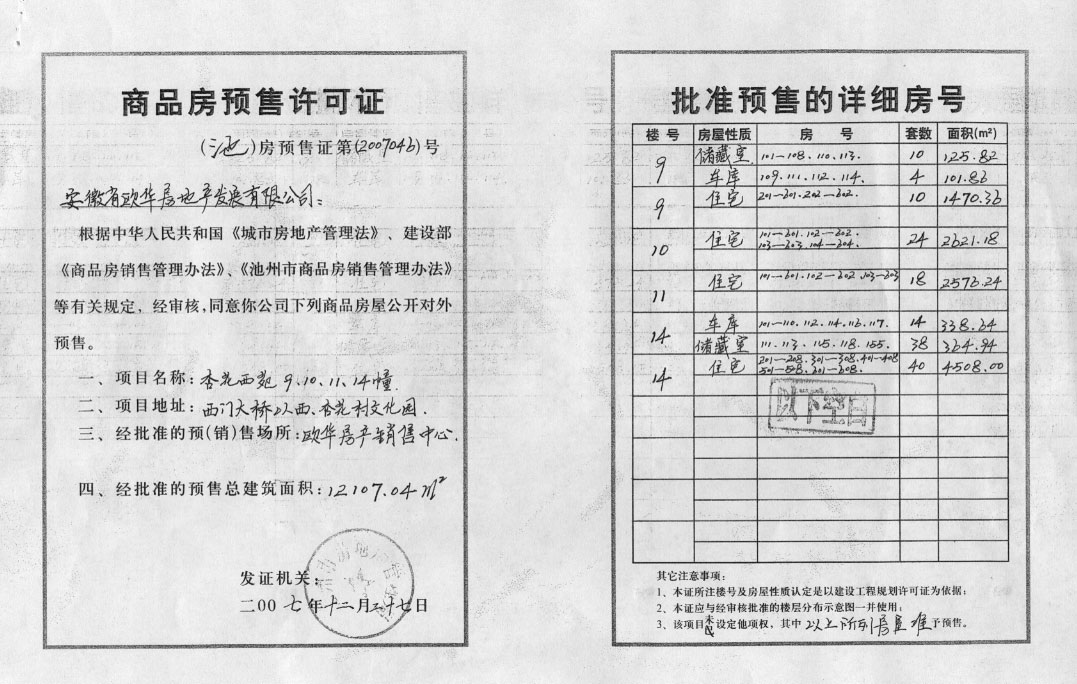 商品房预售许可证
(池)房预售证第(2007046)号
安徽省欧华房地产发展有限公司:
根据中华人民共和国《城市房地产管理法》、建设部
《商品房销售管理办法》、《池州市商品房销售管理办法》
等有关规定，经审核,同意你公司下列商品房屋公开对外
预售。
一、项目名称:杏花西苑9.10.11.14幢.
二、项目地址:西门大桥以西.杏花村文化园.
三、经批准的预(销)售场所:欧华房产销售中心.
四、经批准的预售总建筑面积:12107.04m²
发证机关:
二00七年十二月二十七日
批准预售的详细房号
楼号 房屋性质 房号 套数 面积(m²)
9 储藏室 101—108.110.113. 10 125.82
车库 109.111.112.114. 4 101.86
9 住宅 201—601.202—602. 10 1470.36
10 住宅 101—601.102—602.
103—603.104—604. 24 2621.18
11 住宅 101—601.102—602.103—603 18 2576.24
14 车库 101—110.112.114.116.117. 14 338.64
储藏室 111.113.115.118.155. 38 364.94
14 住宅 201—208.301—308.401—408
501—508.601—608. 40 4508.00
以下空白
其它注意事项:
1、本证所注楼号及房屋性质认定是以建设工程规划许可证为依据;
2、本证应与经审核批准的楼层分布示意图一并使用;
3、该项目未设定他项权，其中以上所列房屋准予预售。